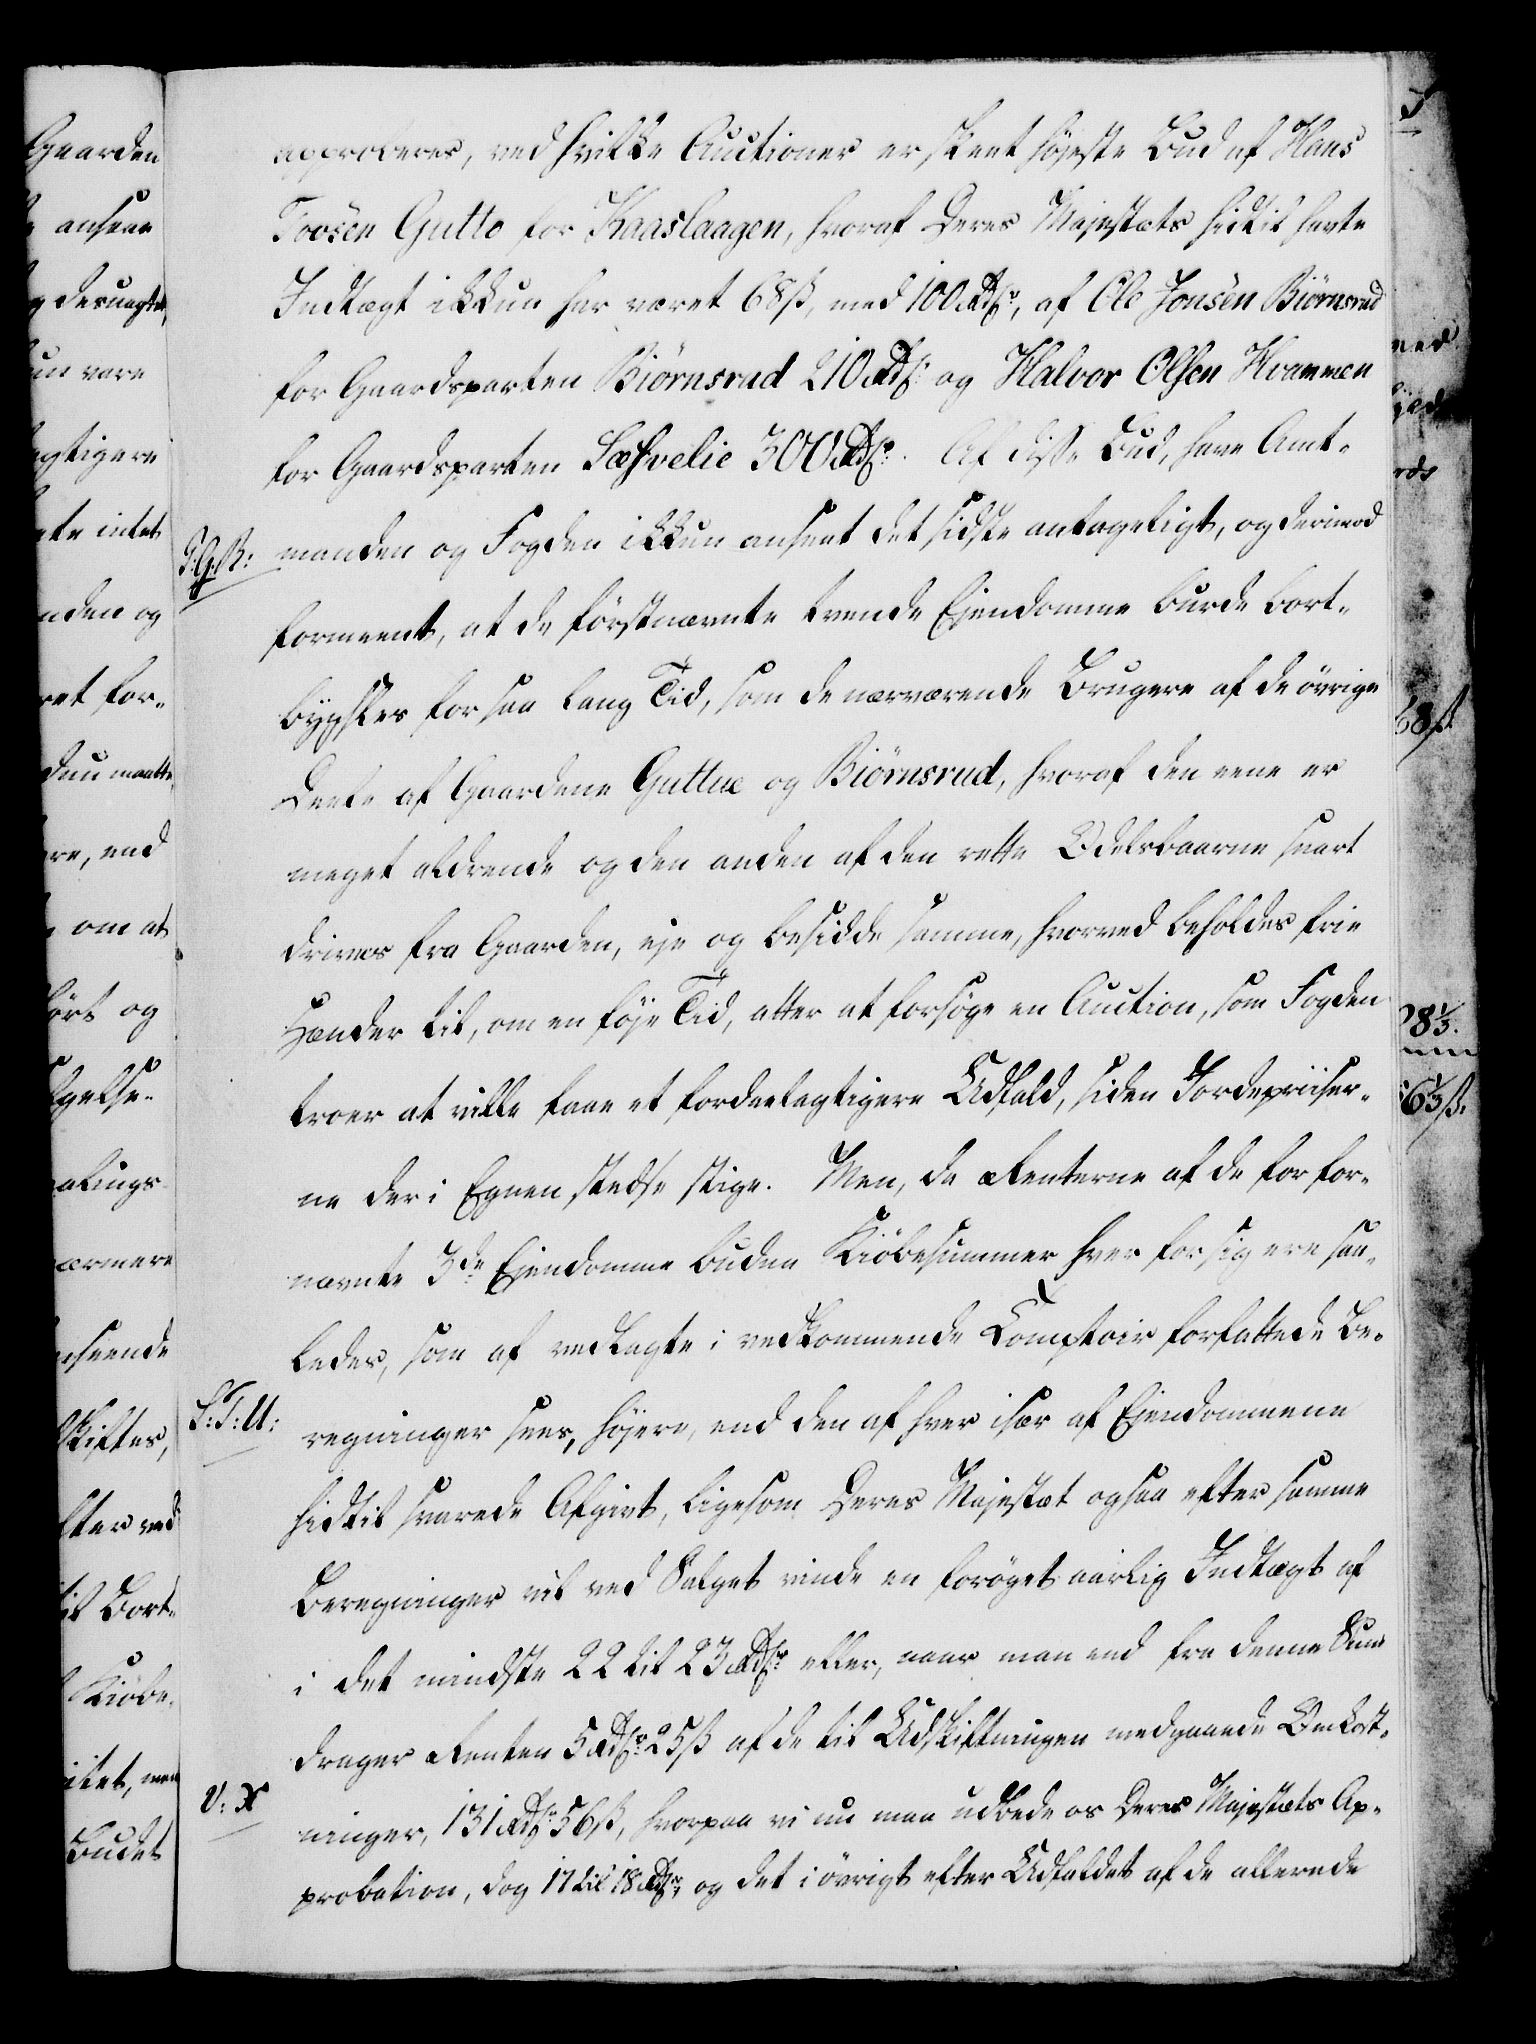 approberes, ved hvilke Auctioner er skeet højeste Bud af Hans
Tovsen Gutto for Kaaslaagen, hvoraf Deres Majestæts hidtil havte
Indtægt ikkun har været 68ß, med 100 Rdr, af Ole Jonsen Biørnsrud
for Gaardsparten Biørnsrud 210 Rdr og Halvor Olsen Hvammen
for Gaardsparten Sætvelie 300 Rdr. Af disse Bud, have Amt-
manden og Fogden ikkun anseet det sidste antageligt, og derimod
formeent, at de förstnævnte tvende Ejendomme burde bort-
bygsles for saa lang Tid, som de nærværende Brugere af de øvrige
Deele af Gaardene Guttue og Biørnsrud, hvoraf den eene er
meget aldrende og den anden af den rette Odelsbaarne snart
drives fra Gaarden, eje og besidde samme, hvorved beholdes frie
Hænder til, om en føje Tid, atter at forsøge en Auction, som Fogden
troer at ville faae et fordeelagtigere Udfald, siden Jordepriiser-
ne der i Egnen stedse stige. Men, da Renterne af de for for-
nævnte 3de Ejendomme budne Kiöbesummer hver for sig ere saa-
ledes, som af vedlagte i vedkommende Comptoir forfattede Be-
regninger sees, højere, end den af hver især af Ejendommene
hidtil svarede Afgivt, ligesom Deres Majestæt ogsaa efter samme
Beregninger vil ved Salget vinde en forøget aarlig Indtægt af
i det mindste 22 til 23 Rdr eller, naar man end fra denne Sum
drager Renten 5 Rdr 25ß af de til Udskiftningen medgaaede Omkost-
ninger, 131 Rdr 56ß, hvorpaa vi nu maa udbede os Deres Majestæts Ap-
probation, dog 17 til 18 Rdr, og det i øvrigt efter Udfaldet af de allerede
S: T: U:
V: X
Gaarden
ansee
desuagtet,
vare
agtigere
intet
og
for-
maatte
end
om at
og
ærmere
ved
Bort-
Kiöbe-
Budet